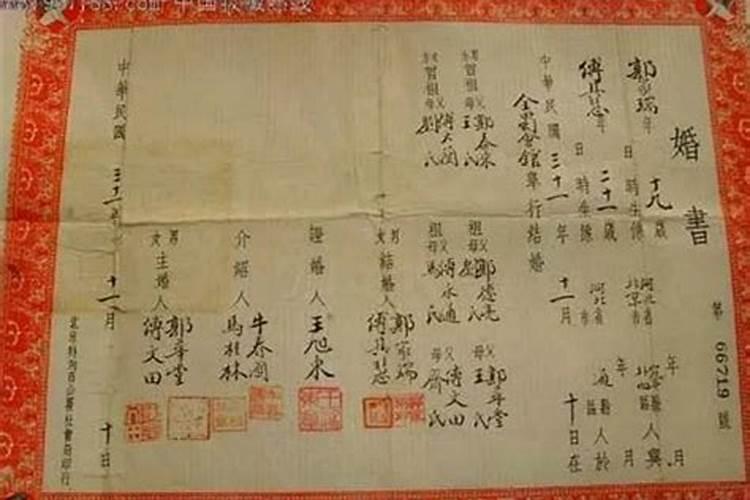 婚書
第 66719 號
郭家瑞 年 月 日 時生係 十九歲 河北省 北京市 縣區人與
傅其慧 年 月 日 時生係 二十一歲 河北省 市 通縣區人於
中華民國三十一年十一月十日在
全蜀會館舉行結婚
男曾祖父郭泰來 母王氏 祖父郭德亮 母氏 父郭華堂 母王氏
女曾祖父傅文蘭 母劉氏 祖父傅永通 母馬氏 父傅文田 母齊氏
男結婚人郭家瑞
女結婚人傅其慧
證婚人王旭東
介紹人牛春圃
馬桂林
男主婚人郭華堂
女主婚人傅文田
中華民國三十一年十一月十日